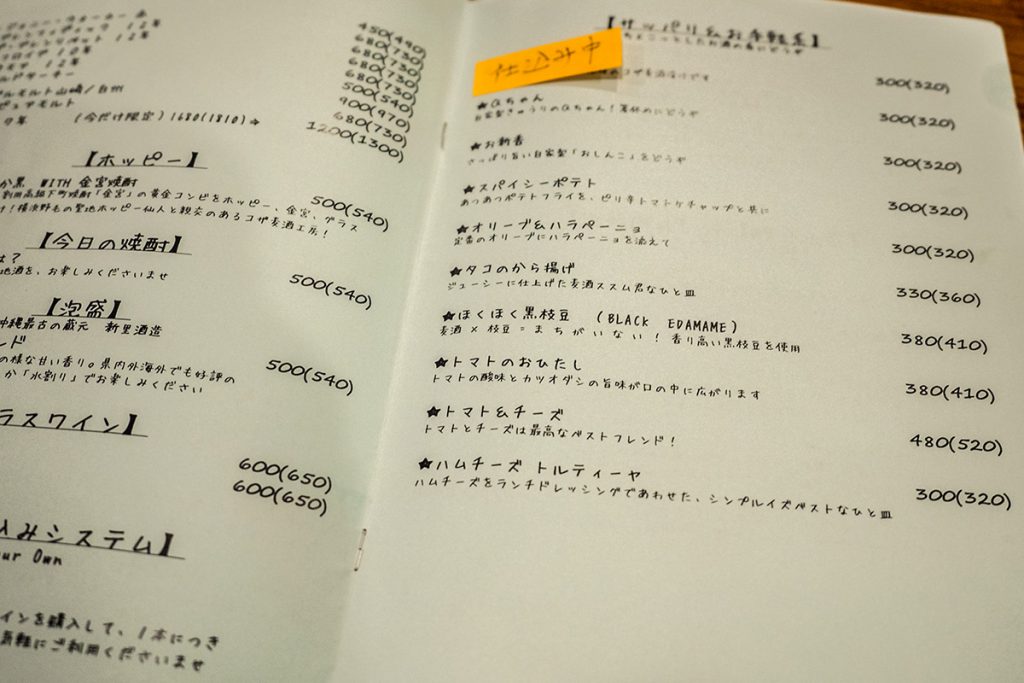 450(490)
１２年 680(730)
１２年 680(730)
１０年 680(730)
１２年 680(730)
500(540)
山崎/白州 900(970)
ピュアモルト 680(730)
(今だけ限定)1680(1810)⇒ 1200(1300)
【ホッピー】
黒 WITH 金宮焼酎 500(540)
「金宮」の黄金コンビをホッピー、金宮、グラス
！横浜野毛の聖地ホッピー仙人と親交のあるコザ麦酒工房！
【今日の焼酎】
は？ 500(540)
地酒を、お楽しみくださいませ
【泡盛】
沖縄最古の蔵元 新里酒造
ンド 500(540)
の様な甘い香り。県内外海外でも好評の
か「水割り」でお楽しみください
ラスワイン】
600(650)
600(650)
込みシステム】
our Own
インを購入して、１本につき
気軽にご利用くださいませ
【サッパリ&お手軽系】
ちょこっとしたお酒の肴にどうぞ
仕込み中
コザ麦酒 300(320)
★Qちゃん 300(320)
自家製きゅうりのQちゃん！箸休めにどうぞ
★お新香 300(320)
さっぱり旨い自家製「おしんこ」をどうぞ
★スパイシーポテト 300(320)
あつあつポテトフライを、ピリ辛トマトケチャップと共に
★オリーブ&ハラペーニョ 300(320)
定番のオリーブにハラペーニョを添えて
★タコのから揚げ 330(360)
ジューシーに仕上げた麦酒ススム君なひと皿
★ほくほく黒枝豆 (BLACK EDAMAME) 380(410)
麦酒×枝豆=まちがいない！香り高い黒枝豆を使用
★トマトのおひたし 380(410)
トマトの酸味とカツオダシの旨味が口の中に広がります
★トマト&チーズ 480(520)
トマトとチーズは最高なベストフレンド！
★ハムチーズ トルティーヤ 300(320)
ハムチーズをランチドレッシングであわせた、シンプルイズベストなひと皿